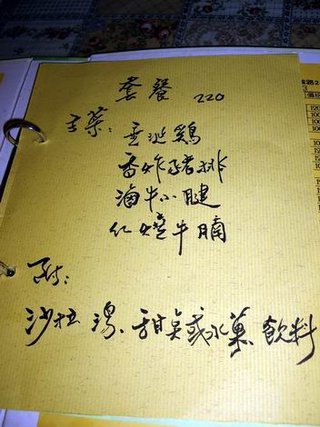 套餐 220
主菜：垂涎鷄
香炸豬排
滷牛小腱
紅燒牛腩
附：
沙拉 湯、甜点或水菓 飲料